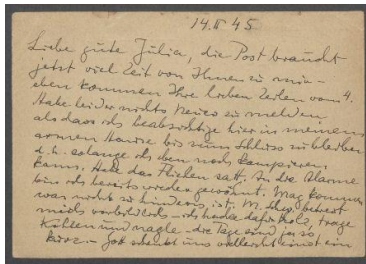 14.II 45
Liebe gute Julia, die Post braucht
jetzt viel Zeit von Ihnen zu mir –
eben kommen Ihre lieben Zeilen vom 4.
Habe leider nichts Neues zu melden,
als dass ich beabsichtige hier in meinem
armen Hause bis zum Schluss zu bleiben
d. h. solange ich eben noch kampieren
kann. Habe das Fliehen satt. An die Alarme
bin ich bereits wieder gewöhnt. Mag kommen
was nicht zu hindern ist. M. betreut
mich vorbildlich – ich hacke dafür Holz, trage
Kohlen und nagle – die Tage sind ja so
kurz – Gott schenkt uns vielleicht einst ein